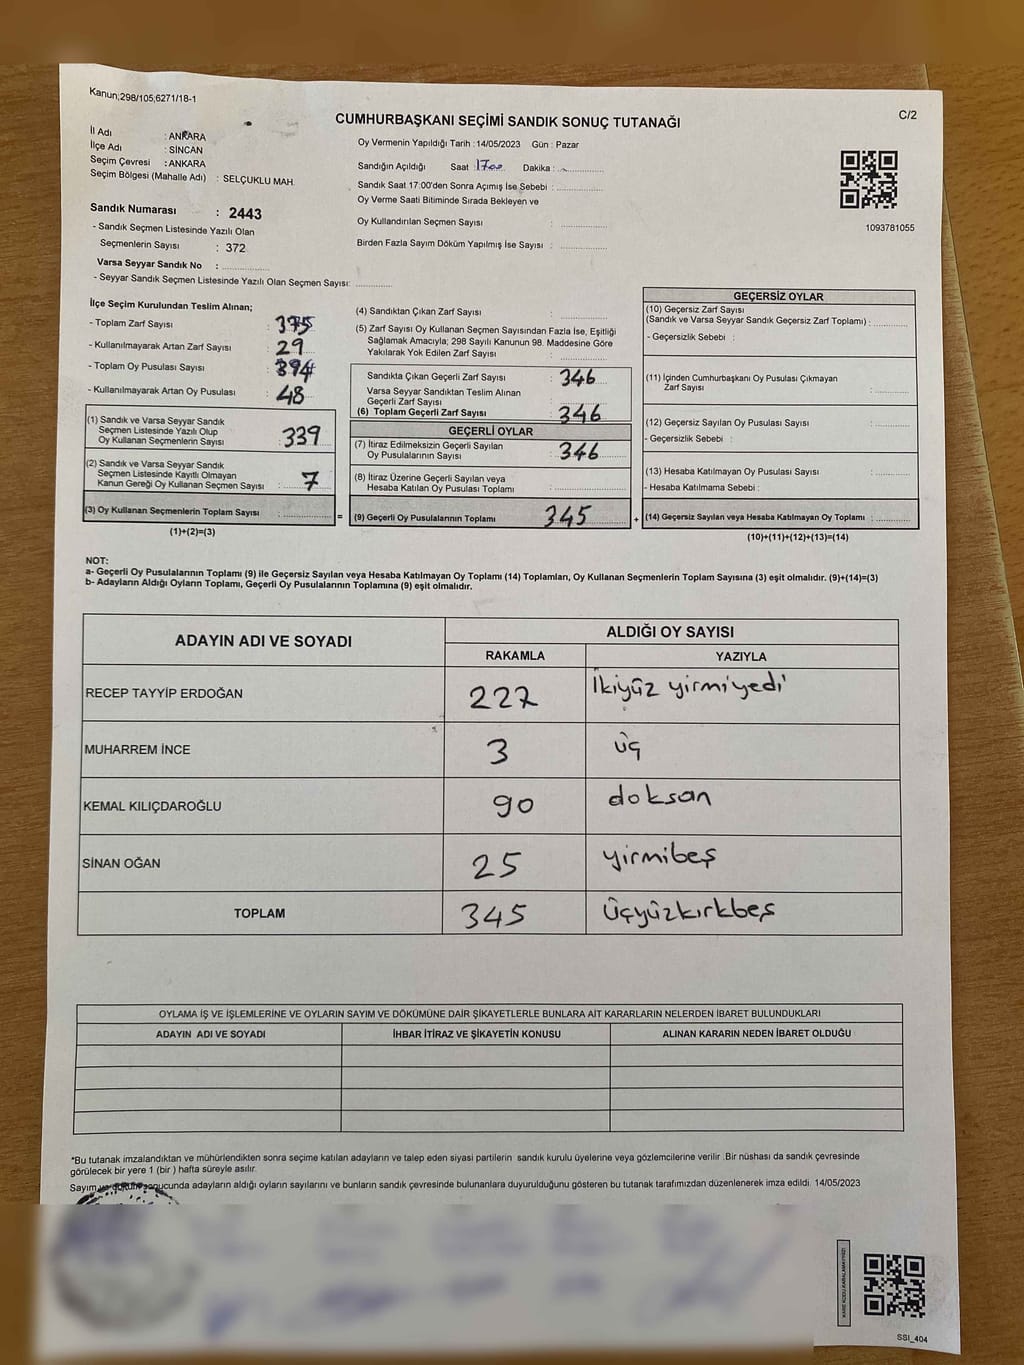 Kanun;298/105;6271/18-1
C/2
CUMHURBAŞKANI SEÇİMİ SANDIK SONUÇ TUTANAĞI
İl Adı : ANKARA
İlçe Adı : SİNCAN
Seçim Çevresi : ANKARA
Seçim Bölgesi (Mahalle Adı) : SELÇUKLU MAH.
Sandık Numarası : 2443
- Sandık Seçmen Listesinde Yazılı Olan
Seçmenlerin Sayısı : 372
Varsa Seyyar Sandık No : ..............
- Seyyar Sandık Seçmen Listesinde Yazılı Olan Seçmen Sayısı: ............
Oy Vermenin Yapıldığı Tarih : 14/05/2023 Gün : Pazar
Sandığın Açıldığı Saat : 1700 Dakika : ..............
Sandık Saat 17:00'den Sonra Açımış İse Sebebi : ..............
Oy Verme Saati Bitiminde Sırada Bekleyen ve
Oy Kullandırılan Seçmen Sayısı : ..............
Birden Fazla Sayım Döküm Yapılmış İse Sayısı : ..............
1093781055
İlçe Seçim Kurulundan Teslim Alınan;
- Toplam Zarf Sayısı : 375
- Kullanılmayarak Artan Zarf Sayısı : 29
- Toplam Oy Pusulası Sayısı : 394
- Kullanılmayarak Artan Oy Pusulası : 48
(1) Sandık ve Varsa Seyyar Sandık
Seçmen Listesinde Yazılı Olup
Oy Kullanan Seçmenlerin Sayısı : 339
(2) Sandık ve Varsa Seyyar Sandık
Seçmen Listesinde Kayıtlı Olmayan
Kanun Gereği Oy Kullanan Seçmen Sayısı : 7
(3) Oy Kullanan Seçmenlerin Toplam Sayısı : .............. =
(1)+(2)=(3)
(4) Sandıktan Çıkan Zarf Sayısı : ..............
(5) Zarf Sayısı Oy Kullanan Seçmen Sayısından Fazla İse, Eşitliği
Sağlamak Amacıyla; 298 Sayılı Kanunun 98. Maddesine Göre
Yakılarak Yok Edilen Zarf Sayısı : ..............
Sandıkta Çıkan Geçerli Zarf Sayısı : 346
Varsa Seyyar Sandıktan Teslim Alınan
Geçerli Zarf Sayısı :
(6) Toplam Geçerli Zarf Sayısı : 346
GEÇERLİ OYLAR
(7) İtiraz Edilmeksizin Geçerli Sayılan
Oy Pusulalarının Sayısı : 346
(8) İtiraz Üzerine Geçerli Sayılan veya
Hesaba Katılan Oy Pusulası Toplamı : ..............
(9) Geçerli Oy Pusulalarının Toplamı 345 +
GEÇERSİZ OYLAR
(10) Geçersiz Zarf Sayısı
(Sandık ve Varsa Seyyar Sandık Geçersiz Zarf Toplamı) : ..........
- Geçersizlik Sebebi :
(11) İçinden Cumhurbaşkanı Oy Pusulası Çıkmayan
Zarf Sayısı : ..........
(12) Geçersiz Sayılan Oy Pusulası Sayısı : ..........
- Geçersizlik Sebebi :
(13) Hesaba Katılmayan Oy Pusulası Sayısı : ..........
- Hesaba Katılmama Sebebi :
(14) Geçersiz Sayılan veya Hesaba Katılmayan Oy Toplamı : ..........
(10)+(11)+(12)+(13)=(14)
NOT:
a- Geçerli Oy Pusulalarının Toplamı (9) ile Geçersiz Sayılan veya Hesaba Katılmayan Oy Toplamı (14) Toplamları, Oy Kullanan Seçmenlerin Toplam Sayısına (3) eşit olmalıdır. (9)+(14)=(3)
b- Adayların Aldığı Oyların Toplamı, Geçerli Oy Pusulalarının Toplamına (9) eşit olmalıdır.
ADAYIN ADI VE SOYADI ALDIĞI OY SAYISI
RAKAMLA YAZIYLA
RECEP TAYYİP ERDOĞAN 227 İkiyüz yirmiyedi
MUHARREM İNCE 3 üç
KEMAL KILIÇDAROĞLU 90 doksan
SİNAN OĞAN 25 yirmibeş
TOPLAM 345 üçyüzkırkbeş
OYLAMA İŞ VE İŞLEMLERİNE VE OYLARIN SAYIM VE DÖKÜMÜNE DAİR ŞİKAYETLERLE BUNLARA AİT KARARLARIN NELERDEN İBARET BULUNDUKLARI
ADAYIN ADI VE SOYADI İHBAR İTİRAZ VE ŞİKAYETİN KONUSU ALINAN KARARIN NEDEN İBARET OLDUĞU
*Bu tutanak imzalandıktan ve mühürlendikten sonra seçime katılan adayların ve talep eden siyasi partilerin sandık kurulu üyelerine veya gözlemcilerine verilir .Bir nüshası da sandık çevresinde
görülecek bir yere 1 (bir ) hafta süreyle asılır.
Sayım ve döküm sonucunda adayların aldığı oyların sayılarını ve bunların sandık çevresinde bulunanlara duyurulduğunu gösteren bu tutanak tarafımızdan düzenlenerek imza edildi. 14/05/2023
SSI_404